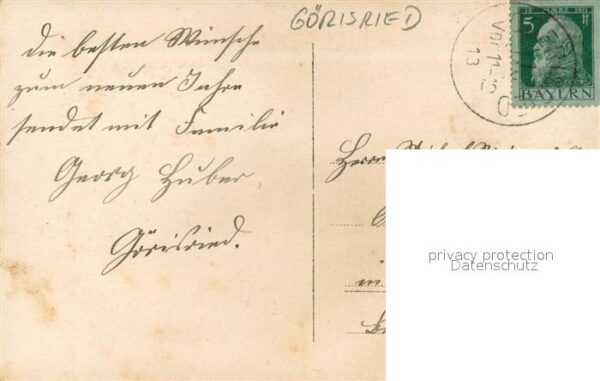 GÖRISRIED
Die besten Wünsche
zum neuen Jahre
sendet mit Familie
Georg Huber,
Görisried.
12. MÄRZ 1911
5
BAYERN
Vor. 11-
13
Herrn
in
privacy protection
Datenschutz